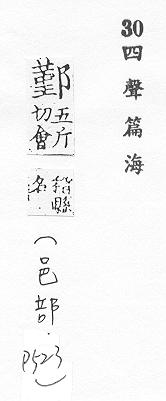 30四聲篇海
鄞五斤切會稽縣名(邑部.P523)